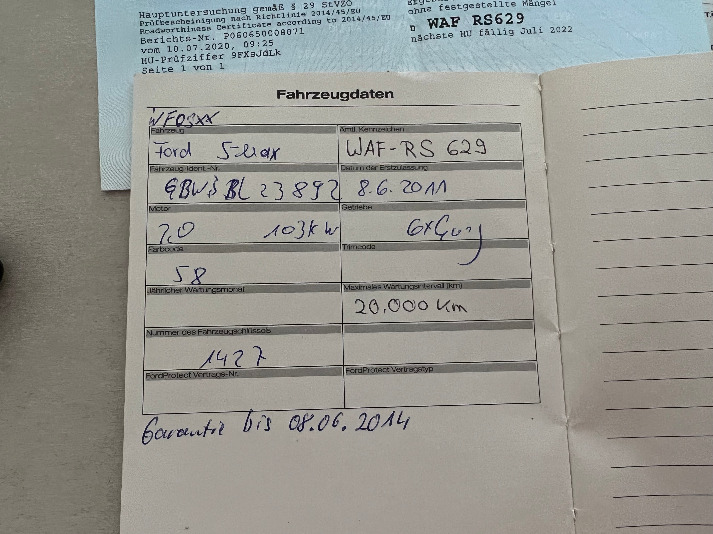 Hauptuntersuchung gemäß § 29 StVZO
Prüfbescheinigung nach Richtlinie 2014/45/EU
Roadworthiness Certificate according to 2014/45/EU
Berichts-Nr. P060650008071
vom 10.07.2020, 09:25
HU-Prüfziffer 9FXsJdLk
Seite 1 von 1
ohne festgestellte Mängel
D WAF RS629
nächste HU fällig Juli 2022
Fahrzeugdaten
WF0SXX
Fahrzeug
Amtl. Kennzeichen
Ford S-Max
WAF-RS 629
Fahrzeug-Ident.-Nr.
Datum der Erstzulassung
BL 23892
8.6.2011
Motor
Getriebe
2,0 103kW
6xGang
Farbcode
Trimcode
58
Jährlicher Wartungsmonat
Maximales Wartungsintervall (km)
20.000 km
Nummer des Fahrzeugschlüssels
1427
FordProtect Vertrags-Nr.
FordProtect Vertragstyp
Garantie bis 08.06.2014